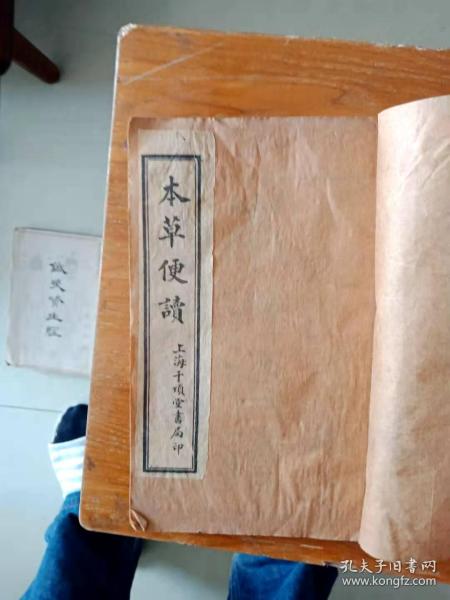 本草便讀
上海千頃堂書局印
鍼灸資生經
孔夫子旧书网
www.kongfz.com